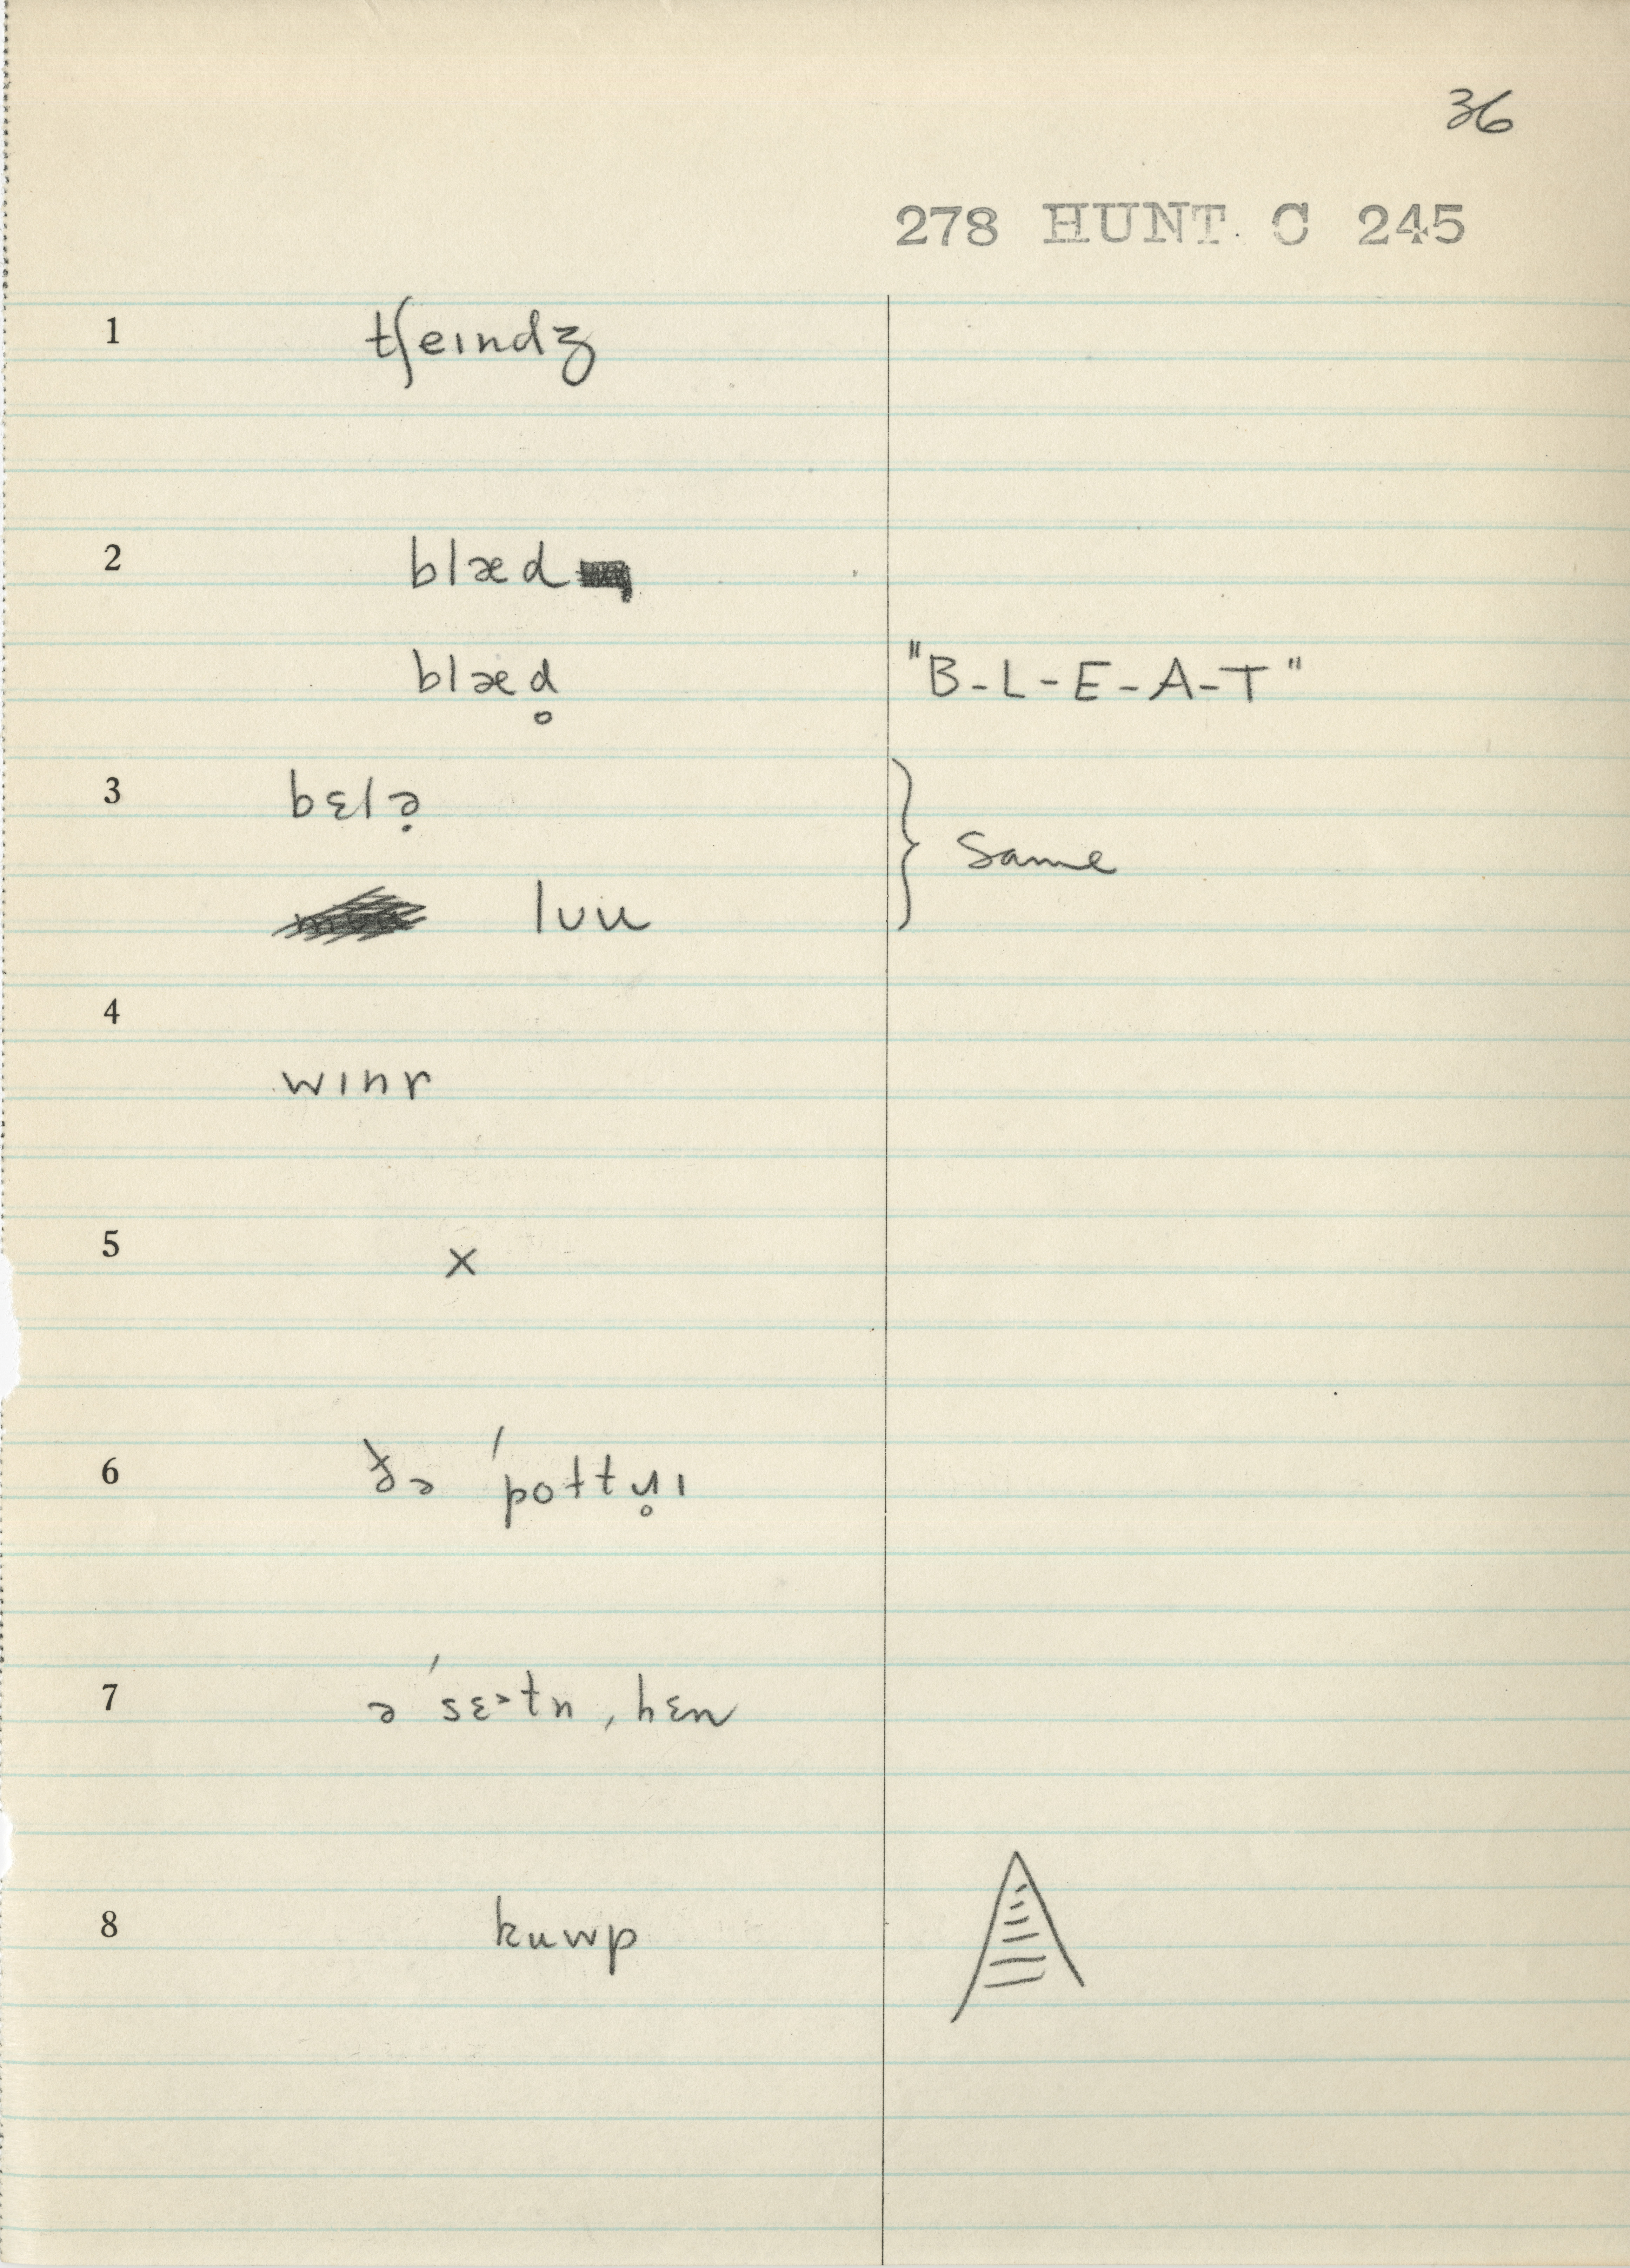 36
278 HUNT C 245
1 tʃeɪndʒ
2 blæd
blæd̥ "B-L-E-A-T"
3 bɛlə̣
luu Same
4 wɪnr
5 x
6 ðə 'pottn̥ɪ
7 ə 'sɛᵊtn, hɛn
8 kuwp